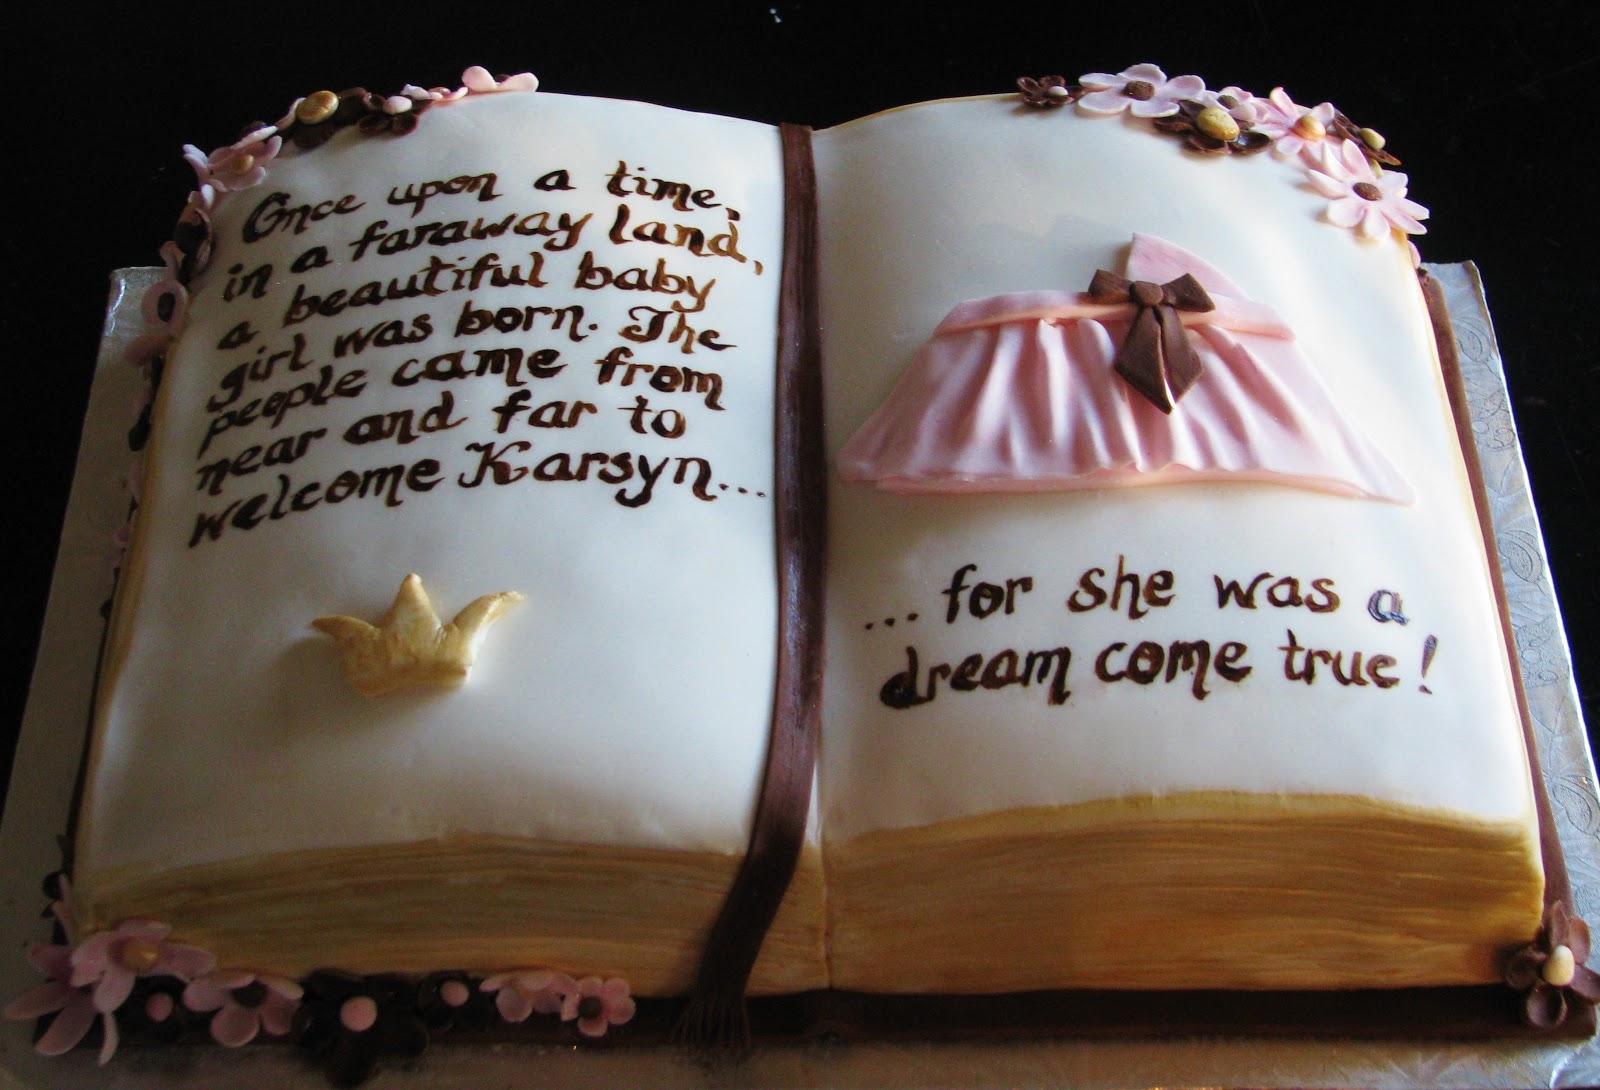 Once upon a time,
in a faraway land,
a beautiful baby
girl was born. The
people came from
near and far to
welcome Karsyn...
...for she was a
dream come true!